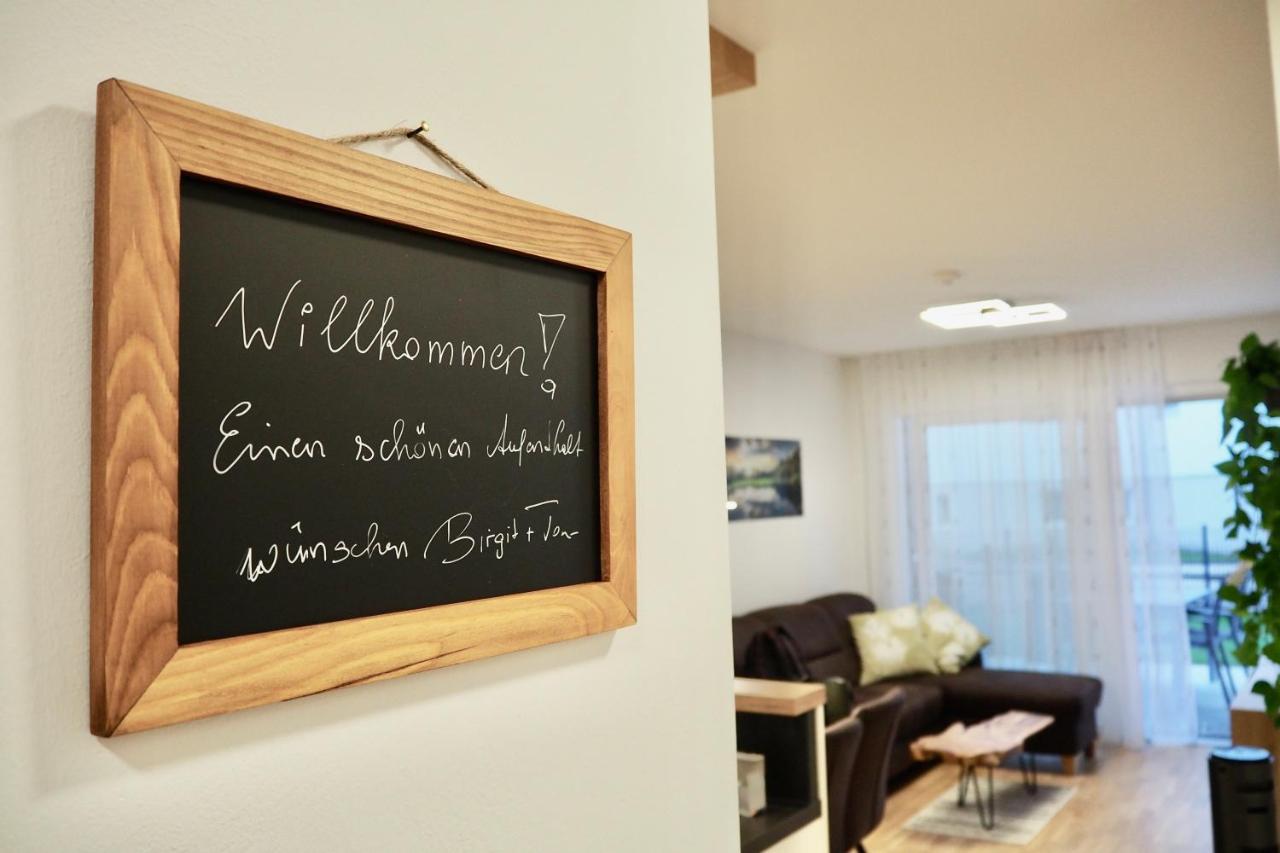 Willkommen!
Einen schönen Aufenthalt
wünschen Birgit + Tom